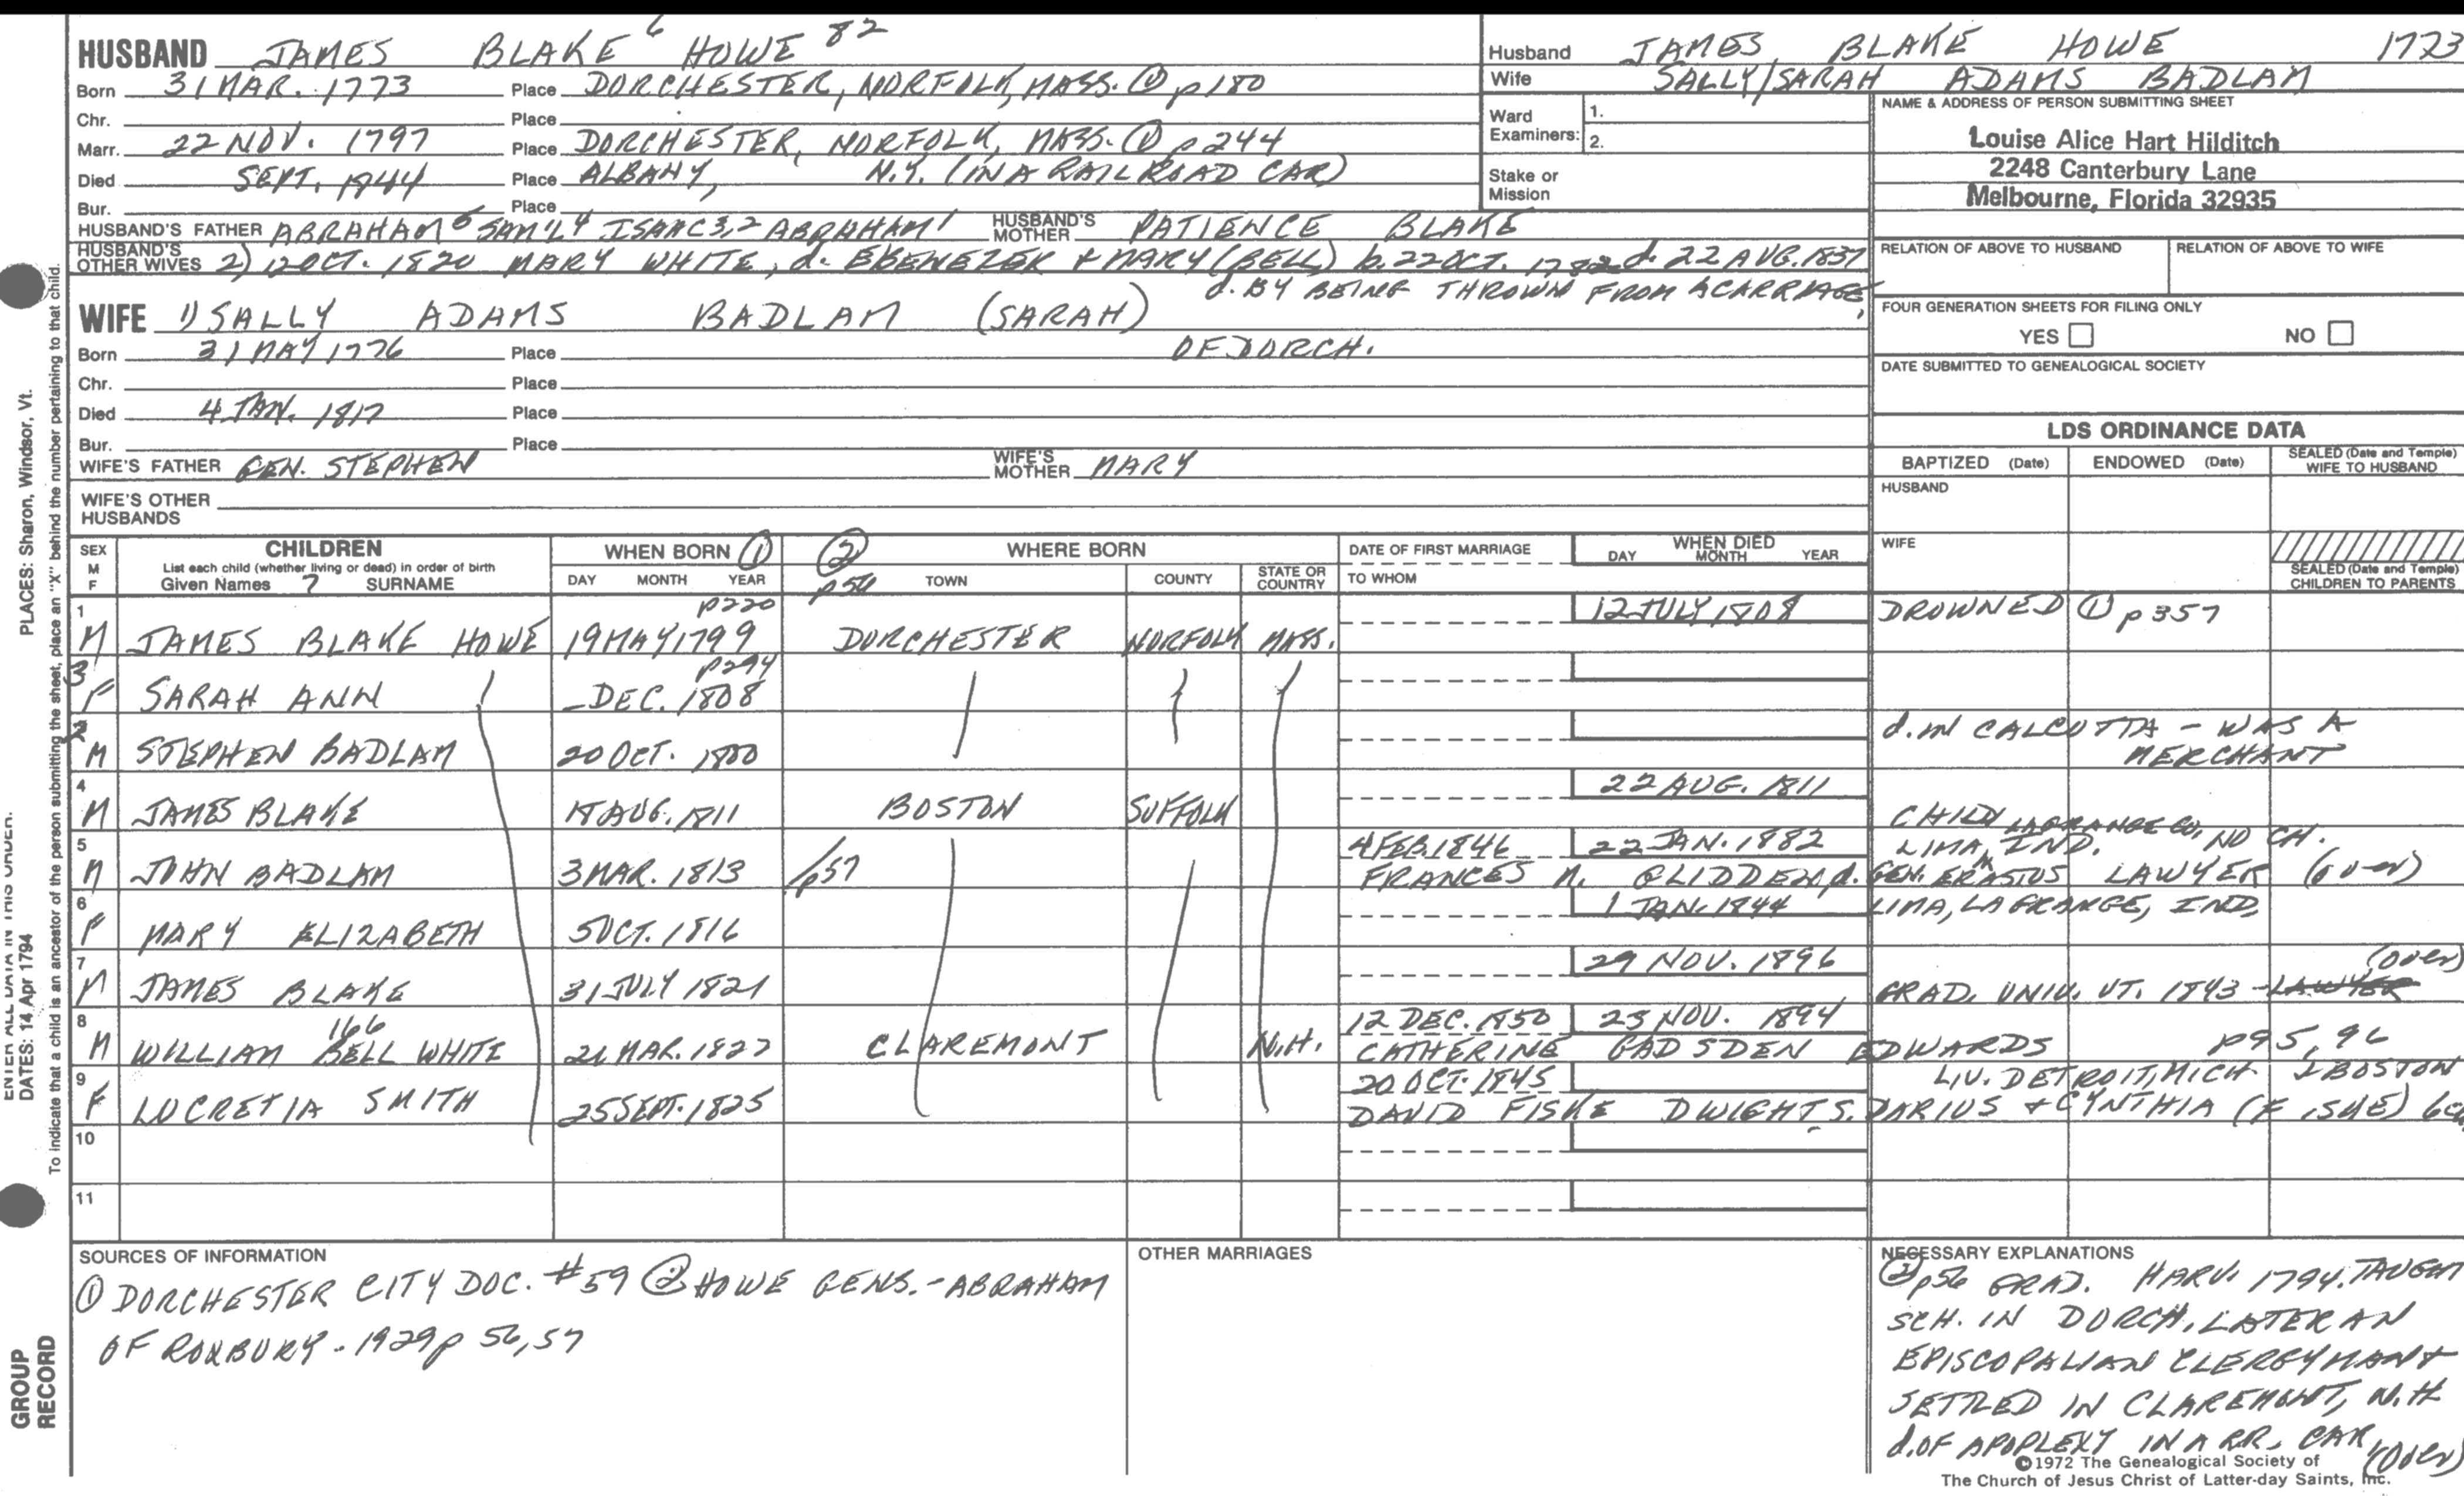 HUSBAND JAMES BLAKE 6 HOWE 82
Born 31 MAR. 1773 Place DORCHESTER, NORFOLK, MASS. ① p180
Chr. Place
Marr. 22 NOV. 1797 Place DORCHESTER, NORFOLK, MASS. ① p244
Died SEPT. 1844 Place ALBANY, N.Y. (IN A RAILROAD CAR)
Bur. Place
HUSBAND'S FATHER ABRAHAM 5 SAM'L 4 ISAAC 3,2 ABRAHAM 1 HUSBAND'S MOTHER PATIENCE BLAKE
HUSBAND'S OTHER WIVES 2) 12 OCT. 1820 MARY WHITE, d. EBENEZER + MARY (BELL) b. 22 OCT. d. 22 AUG. 1837
d. BY BEING THROWN FROM A CARRIAGE
WIFE 1) SALLY ADAMS BADLAM (SARAH)
Born 31 MAY 1776 Place OF DORCH.
Chr. Place
Died 4 JAN. 1817 Place
Bur. Place
WIFE'S FATHER GEN. STEPHEN WIFE'S MOTHER MARY
WIFE'S OTHER HUSBANDS
Husband JAMES BLAKE HOWE 1773
Wife SALLY/SARAH ADAMS BADLAM
Ward Examiners: 1.
2.
Stake or Mission
NAME & ADDRESS OF PERSON SUBMITTING SHEET
Louise Alice Hart Hilditch
2248 Canterbury Lane
Melbourne, Florida 32935
RELATION OF ABOVE TO HUSBAND RELATION OF ABOVE TO WIFE
FOUR GENERATION SHEETS FOR FILING ONLY
YES NO
DATE SUBMITTED TO GENEALOGICAL SOCIETY
LDS ORDINANCE DATA
BAPTIZED (Date) ENDOWED (Date) SEALED (Date and Temple) WIFE TO HUSBAND
HUSBAND
WIFE
SEALED (Date and Temple) CHILDREN TO PARENTS
SEX M F CHILDREN WHEN BORN ① ② WHERE BORN DATE OF FIRST MARRIAGE WHEN DIED
List each child (whether living or dead) in order of birth
Given Names 7 SURNAME DAY MONTH YEAR p56 TOWN COUNTY STATE OR COUNTRY TO WHOM DAY MONTH YEAR
1 p220 12 JULY 1808 DROWNED ① p357
M JAMES BLAKE HOWE 19 MAY 1799 DORCHESTER NORFOLK MASS.
3 p294
F SARAH ANN DEC. 1808
2 d. IN CALCUTTA - WAS A
M STEPHEN BADLAM 20 OCT. 1800 MERCHANT
4 22 AUG. 1811
M JAMES BLAKE AUG. 1811 BOSTON SUFFOLK CHILD
5 4 FEB. 1846 22 JAN. 1882 LIMA, LAGRANGE CO, IND. NO CH.
M JOHN BADLAM 3 MAR. 1813 p57 FRANCES M. GLIDDEN d. GEN. ERASTUS LAWYER (over)
6 1 JAN. 1844 LIMA, LAGRANGE, IND.
F MARY ELIZABETH 5 OCT. 1816
7 29 NOV. 1896 (over)
M JAMES BLAKE 31 JULY 1821 GRAD. UNIV. VT. 1843 LAWYER
8 166 12 DEC. 1850 23 NOV. 1894
M WILLIAM BELL WHITE MAR. 1823 CLAREMONT N.H. CATHERINE GADSDEN EDWARDS p95, 96
9 20 OCT. 1845 LIV. DETROIT, MICH + BOSTON
F LUCRETIA SMITH 25 SEPT. 1825 DAVID FISKE DWIGHT S. DARIUS + CYNTHIA (FISKE)
10
11
SOURCES OF INFORMATION
① DORCHESTER CITY DOC. #59 ② HOWE GENS. - ABRAHAM
OF ROXBURY - 1929 p 56, 57
OTHER MARRIAGES
NECESSARY EXPLANATIONS
② p56 GRAD. HARV. 1794. TAUGHT
SCH. IN DORCH, LATER AN
EPISCOPALIAN CLERGYMAN +
SETTLED IN CLAREMONT, N.H
d. OF APOPLEXY IN A RR. CAR (over)
©1972 The Genealogical Society of
The Church of Jesus Christ of Latter-day Saints, Inc.
PLACES: Sharon, Windsor, Vt.
ENTER ALL DATA IN THIS ORDER:
DATES: 14 Apr 1794
To indicate that a child is an ancestor of the person submitting the sheet, place an "X" behind the number pertaining to that child.
GROUP
RECORD